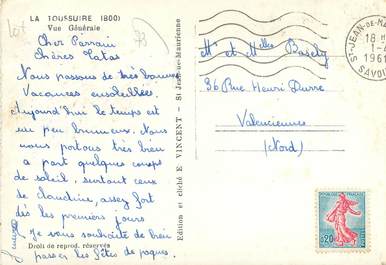 LA TOUSSUIRE (1800)
Vue Générale
Cher Parrain
Chères Tatas
Nous passons de très bonnes
Vacances ensoleillées.
Aujourd'hui le temps est
un peu brumeux. Nous
nous portons très bien
à part quelques coups
de soleil, surtout ceux
de Claudine, assez fort
dès les premiers jours
Je vous souhaite de bien
passer les fêtes de paques.
Droit de reprod. réservés
Edition et cliché E. VINCENT - St Jean-de-Maurienne
Mr et Melles
36 Rue Henri Durre
Valenciennes
(Nord)
ST-JEAN-DE-MA
18
1-4
1961
SAVOIE
0,20